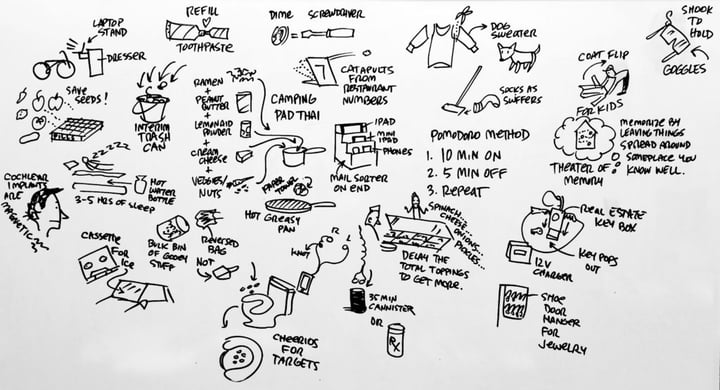 LAPTOP
STAND
DRESSER
REFILL
TOOTHPASTE
DIME SCREWDRIVER
DOG
SWEATER
SHOOK
TO
HOLD
GOGGLES
SAVE
SEEDS!
INTERIM
TRASH
CAN
RAMEN
+
PEANUT
BUTTER
+
LEMONAID
POWDER
+
CREAM
CHEESE
+
VEGGIES/
NUTS
CAMPING
PAD THAI
7
CATAPULTS
FROM
RESTAURANT
NUMBERS
SOCKS AS
SWIFFERS
COAT FLIP
FOR KIDS
IPAD
MINI
IPAD
PHONES
MAIL SORTER
ON END
POMODORO METHOD
1. 10 MIN ON
2. 5 MIN OFF
3. REPEAT
MEMORIZE BY
LEAVING THINGS
SPREAD AROUND
SOMEPLACE YOU
KNOW WELL.
THEATER OF
MEMORY
COCHLEAR
IMPLANTS
ARE
MAGNETIC
ZZZZZ
HOT
WATER
BOTTLE
3-5 HRS OF SLEEP
PAPER
TOWEL
HOT GREASY
PAN
CASSETTE
FOR
ICE
BULK BIN
OF GOOEY
STUFF
REVERSED
BAG
NOT
KNOT
R
L
SPINACH...
CHEESE...
ONIONS...
PICKLES...
DELAY THE
TOTAL TOPPINGS
TO GET MORE.
REAL ESTATE
KEY BOX
KEY POPS
OUT
12V
CHARGER
35 MIN
CANNISTER
OR
RX
CHEERIOS
FOR
TARGETS
SHOE
DOOR
HANGER
FOR
JEWELRY